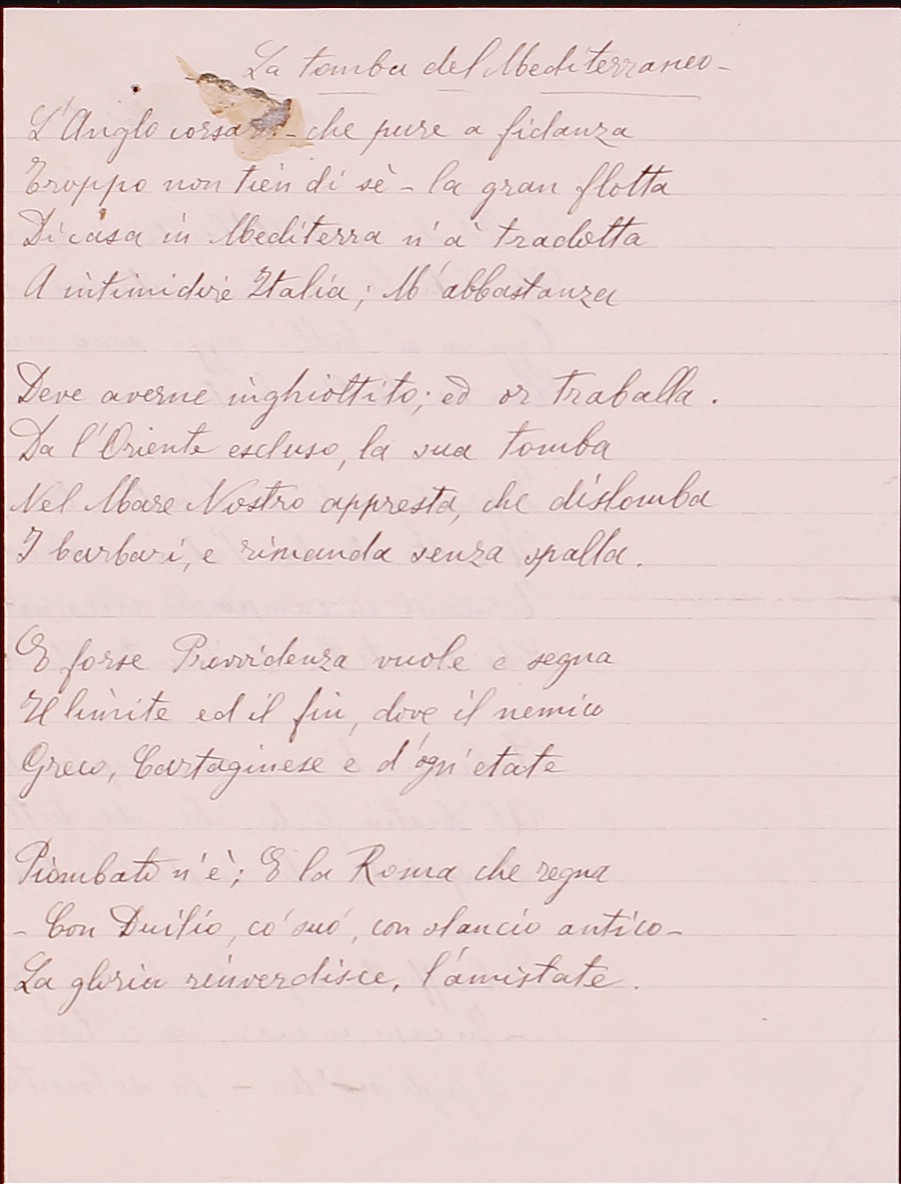 La tomba del Mediterraneo -
L'Anglo corsaro - che pure a fidanza
Troppo non tien di sè - la gran flotta
Di casa in Mediterra n'à tradotta
A intimidire Italia; M'abbastanza
Deve averne inghiottito; ed or traballa.
Da l'Oriente escluso, la sua tomba
Nel Mare Nostro appresta, che dislomba
I barbari, e rimanda senza spalla.
E forse Provvidenza vuole e segna
Il limite ed il fin, dove il nemico
Greco, Cartaginese e d'ogn'etate
Piombato n'è; E la Roma che regna
- Con Duilio, co' suo', con slancio antico -
La gloria rinverdisce, l'amistate.